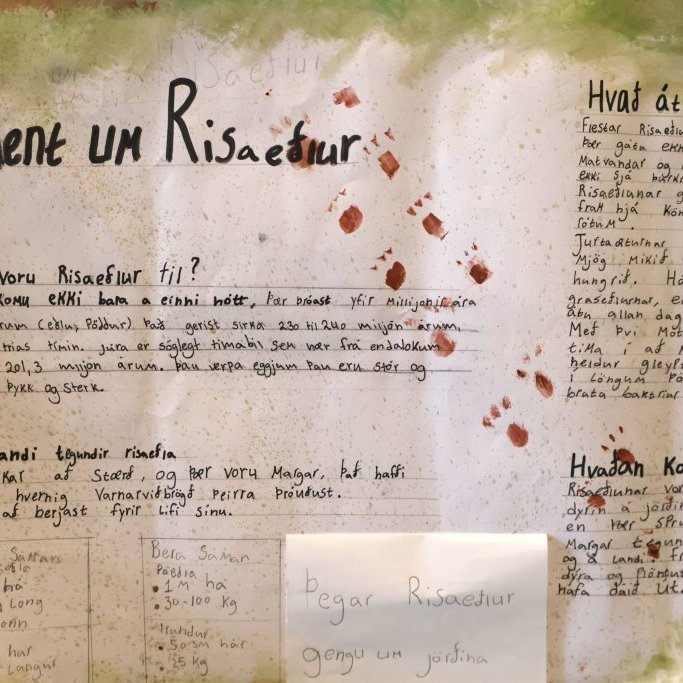 Risaeðlur
ent um Risaeðlur
voru Risaeðlur til?
komu ekki bara a einni nótt, Þær þróast yfir Millijónir ára
rum (eðlu, Pöddur) Það gerist sirka 230 til 240 miljón árum,
trias tímin. Jura er söglegt timabil sem nær frá endalokum
201,3 miljon árum. Þau verpa eggjum Þau eru stór og
Þykk og sterk.
andi tegundir risaeðla
kar af Stærð, og Þær voru Margar, Það hafði
hvernig Varnarviðbrögð Þeirra Þróuðust.
að berjast fyrir Lífi sínu.
há
Long
har
Langur
Bera Saman
Páeðla
• 1 M há
• 30-100 Kg
Hundur
• 50sm hár
• 25 Kg
Þegar Risaeðlur
gengu um jörðina
Hvað át
Flestar Risaeðlu
Þær gáta ekk
Matvandar og
ekki sjá
Risaeðlunar g
fram hjá Kön
rótum.
Jurtaæturnar
Mjög Mikið
hungrið. Há
graseðlurnar, e
átu allan dag
Með Því Mót
tíma í að M
heldur gleyp
í Löngum Þö
brata baktríur
Hvaðan Ko
Risaeðlunar vor
dyrin á jörðin
en Þær spru
Margar tegun
og á Landi. Fr
dýra og Plöntut
hafa dáið út.